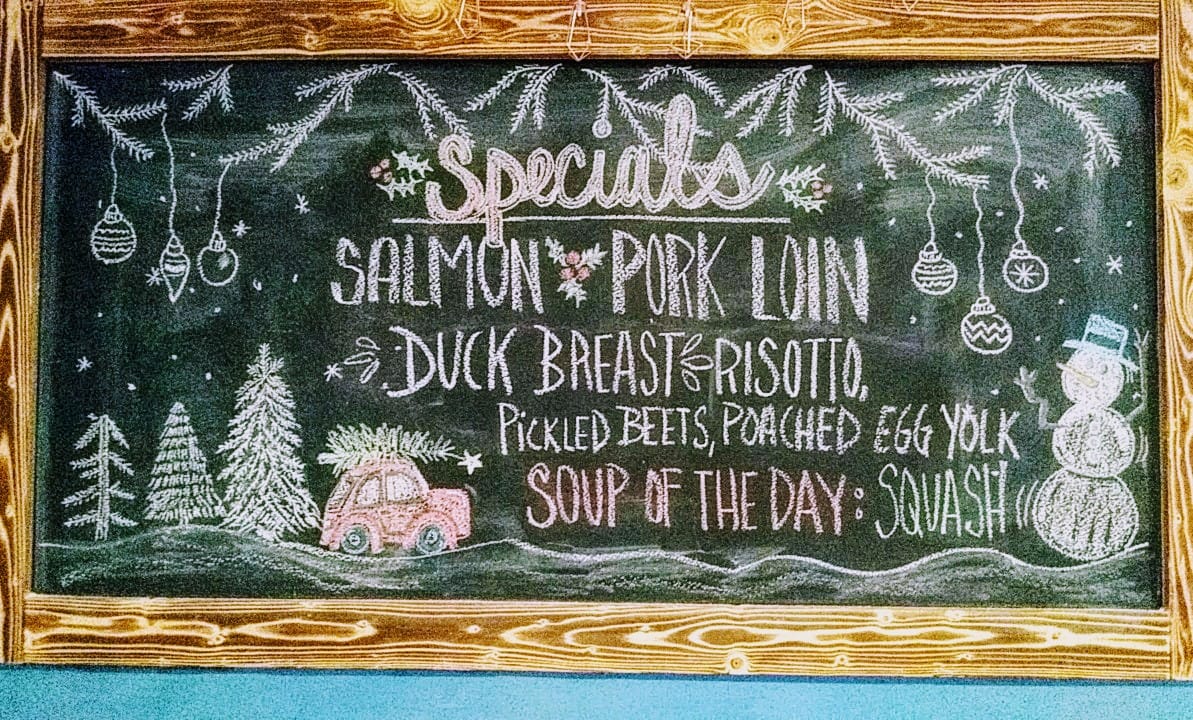 Specials
SALMON PORK LOIN
DUCK BREAST RISOTTO,
PICKLED BEETS, POACHED EGG YOLK
SOUP OF THE DAY: SQUASH